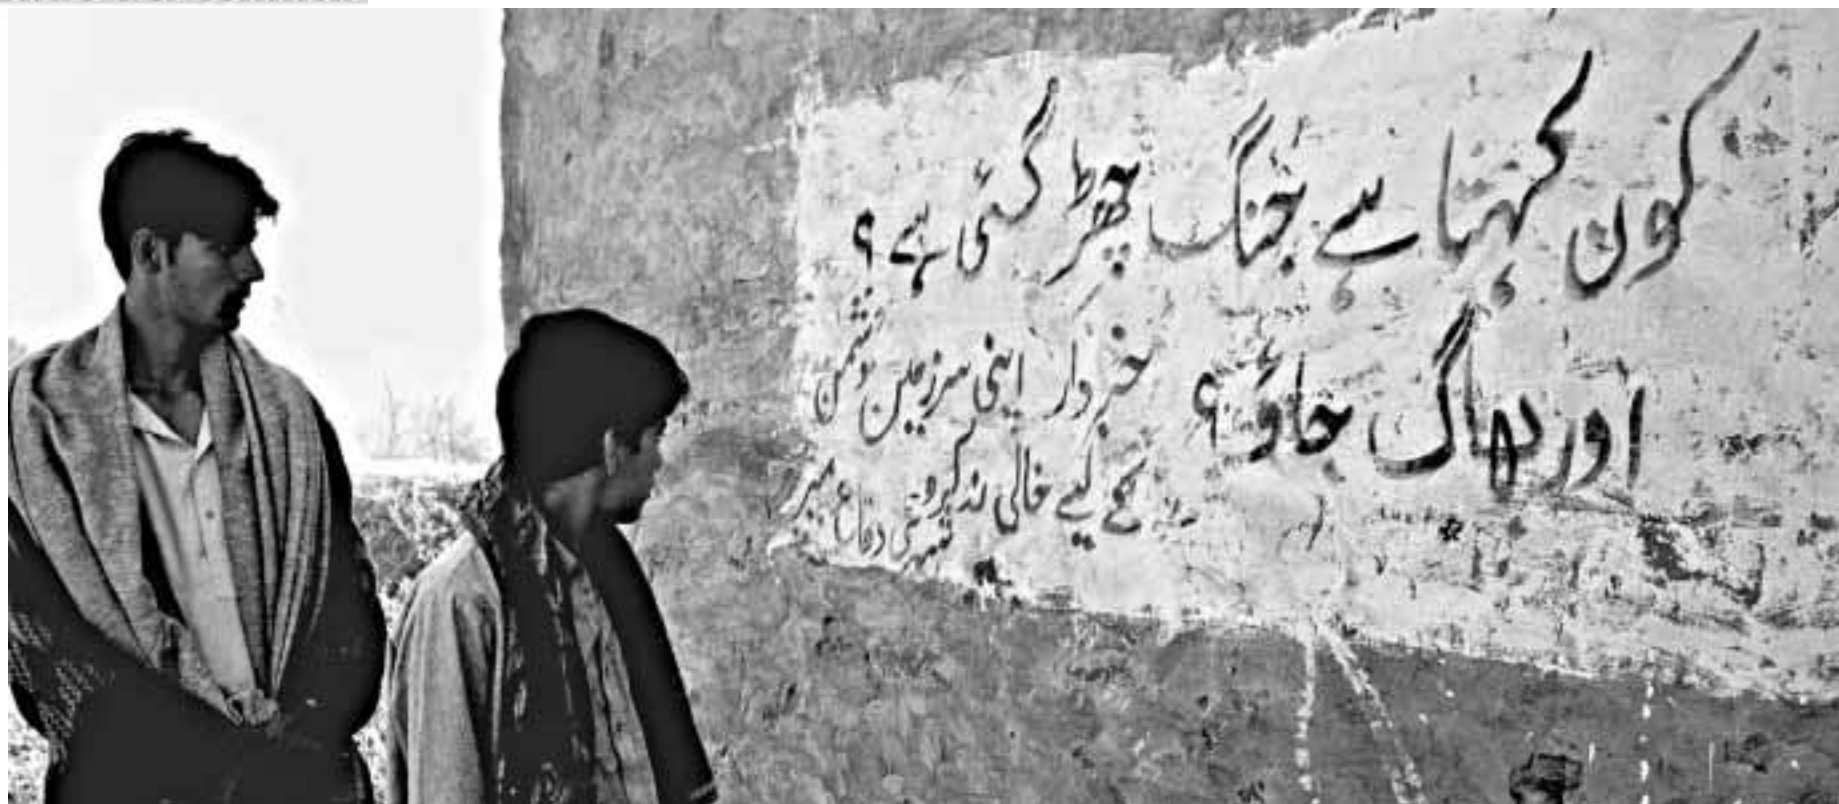 کون کہتا ہے جنگ چھڑ گئی ہے ؟
اور بھاگ جاؤ ؟
خبر دار اپنی سرزمین دشمن
کے لیے خالی نہ کرو۔
شہری دفاع